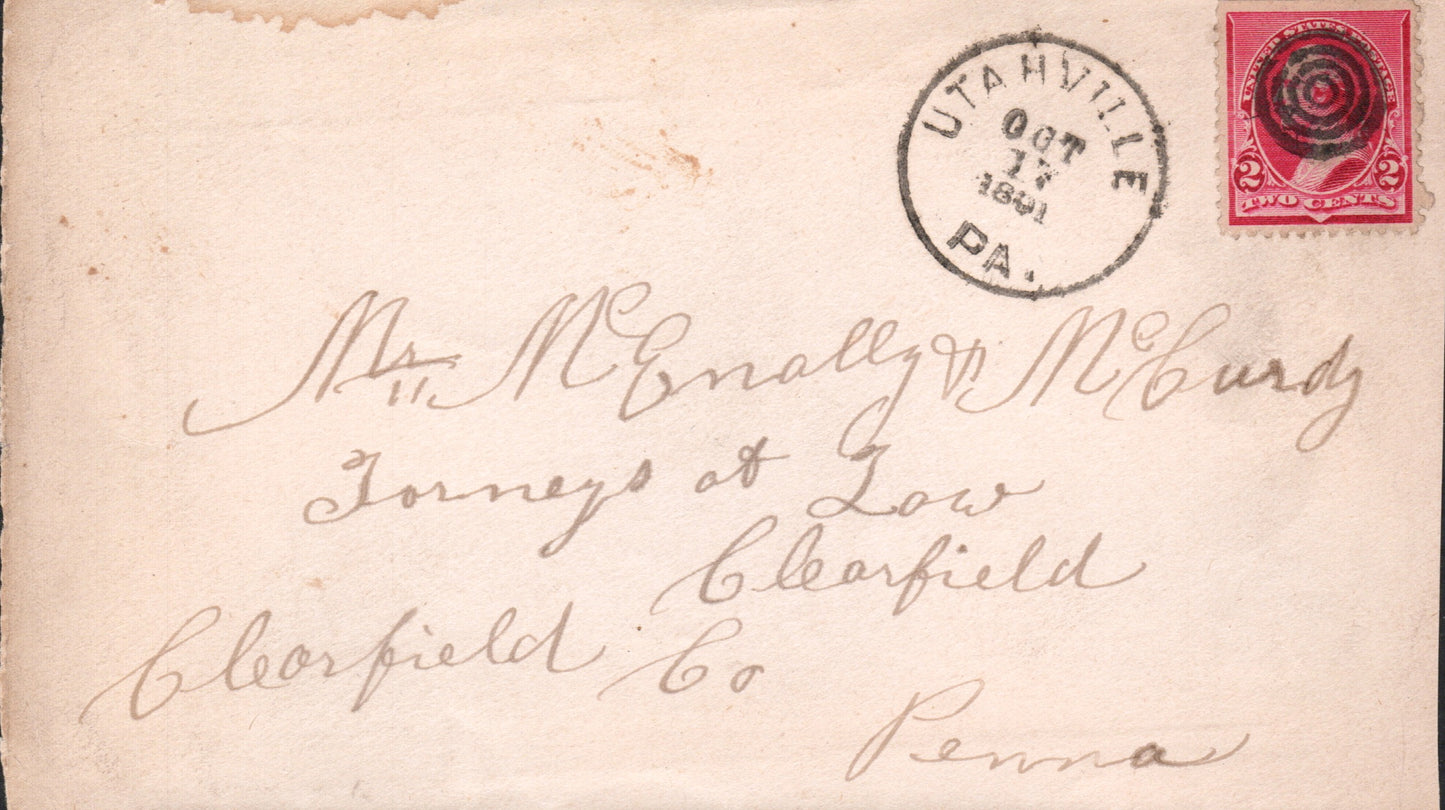 UTAHVILLE
OCT
17
1891
PA.
UNITED STATES POSTAGE
2 2
TWO CENTS
Mr. McEnally & McCurdy
Torneys at Law
Clearfield
Clearfield Co
Penna